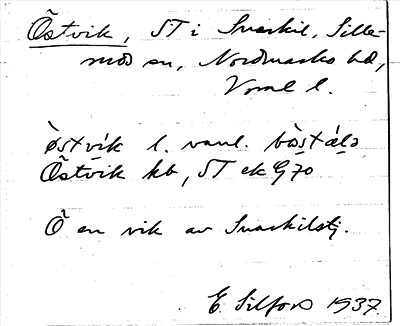 Östvik, ST i Svaskil, Sille-
mods sn, Nordmarks hd,
Vrml l.
östvik l. vanl. 
Östvik kb, ST ek G 70
Ö en vik av Svaskilstj.
E. Silfors 1937.